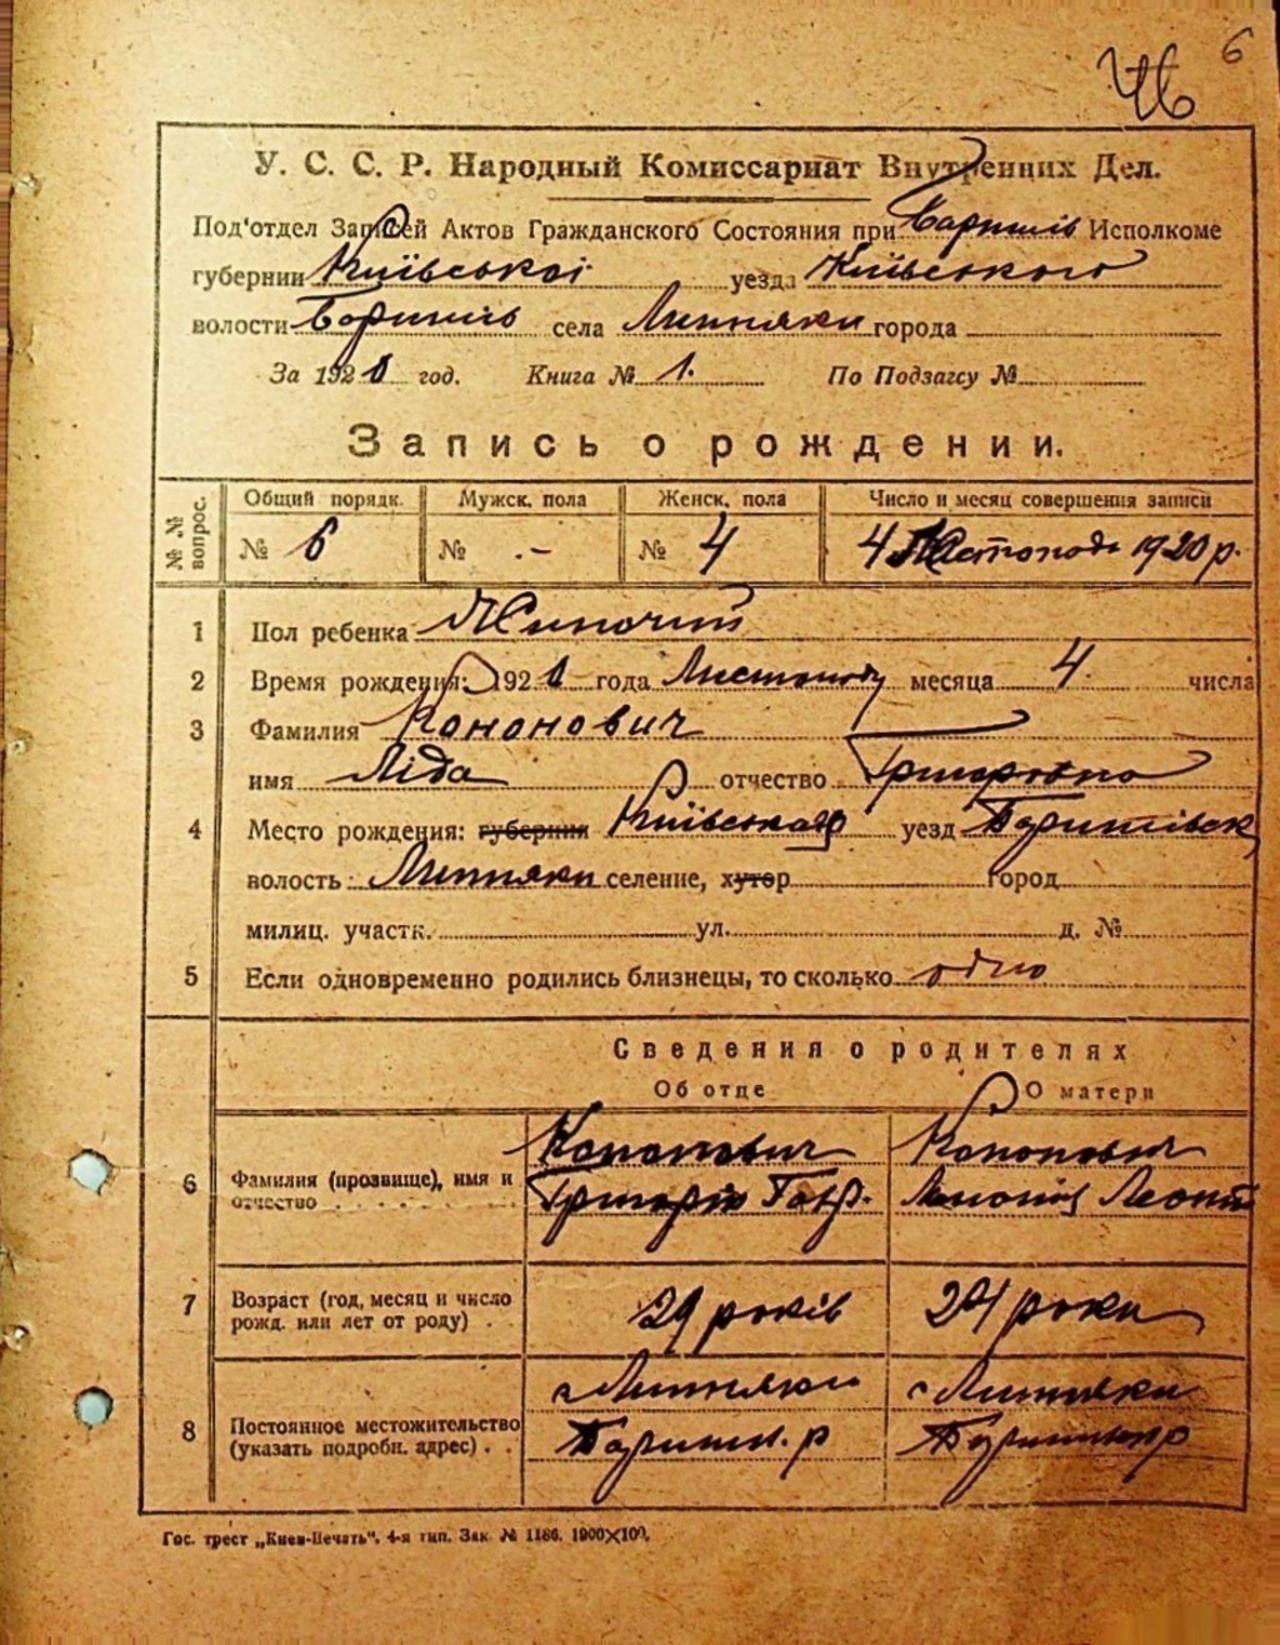 6
46
У. С. С. Р. Народный Комиссариат Внутренних Дел.
Под'отдел Записей Актов Гражданского Состояния при Исполкоме
губернии Київської уезда Київського
волости села Липняки города
За 192 год. Книга № 1. По Подзагсу №
Запись о рождении.
№ № вопрос. Общий порядк. Мужск. пола Женск. пола Число и месяц совершения записи
№ 6 № .- № 4 4 Листопода 1920 р.
1 Пол ребенка Жиночий
2 Время рождения: 192 года Листопода месяца 4. числа
3 Фамилия Кононович
имя Ліда отчество Григоровна
4 Место рождения: губерния Київського уезд
волость Липняки селение, хутор город
милиц. участк. ул. д. №
5 Если одновременно родились близнецы, то сколько одно
Сведения о родителях
Об отце О матери
6 Фамилия (прозвище), имя и отчество Кононович Кононович
Григорій Гавр.
7 Возраст (год, месяц и число рожд. или лет от роду) . 29 років 24 роки
8 Постоянное местожительство (указать подробн. адрес) . . с Липняки с Липняки
Гос. трест „Киев-Печать". 4-я тип. Зак. № 1186. 1900×100.